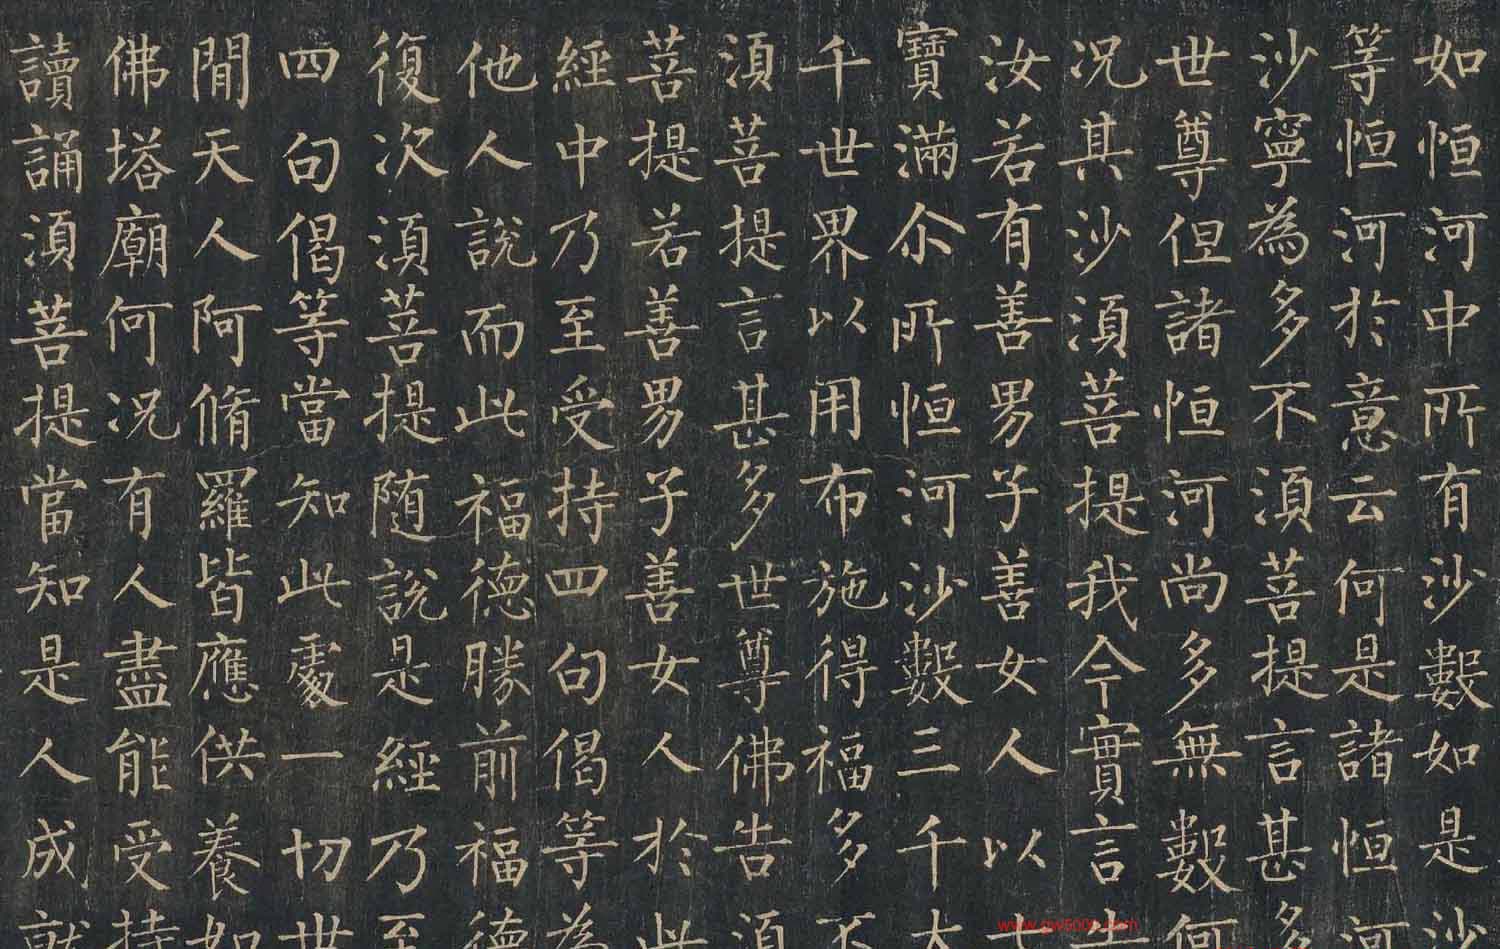 如恒河中所有沙數如是沙
等恒河於意云何是諸恒河
沙寧為多不須菩提言甚多
世尊但諸恒河尚多無數何
况其沙須菩提我今實言告
汝若有善男子善女人以七
寶滿尒所恒河沙數三千大
千世界以用布施得福多不
須菩提言甚多世尊佛告須
菩提若善男子善女人於此
經中乃至受持四句偈等為
他人說而此福德勝前福德
復次須菩提随說是經乃至
四句偈等當知此處一切世
間天人阿脩羅皆應供養如
佛塔廟何况有人盡能受持
讀誦須菩提當知是人成就